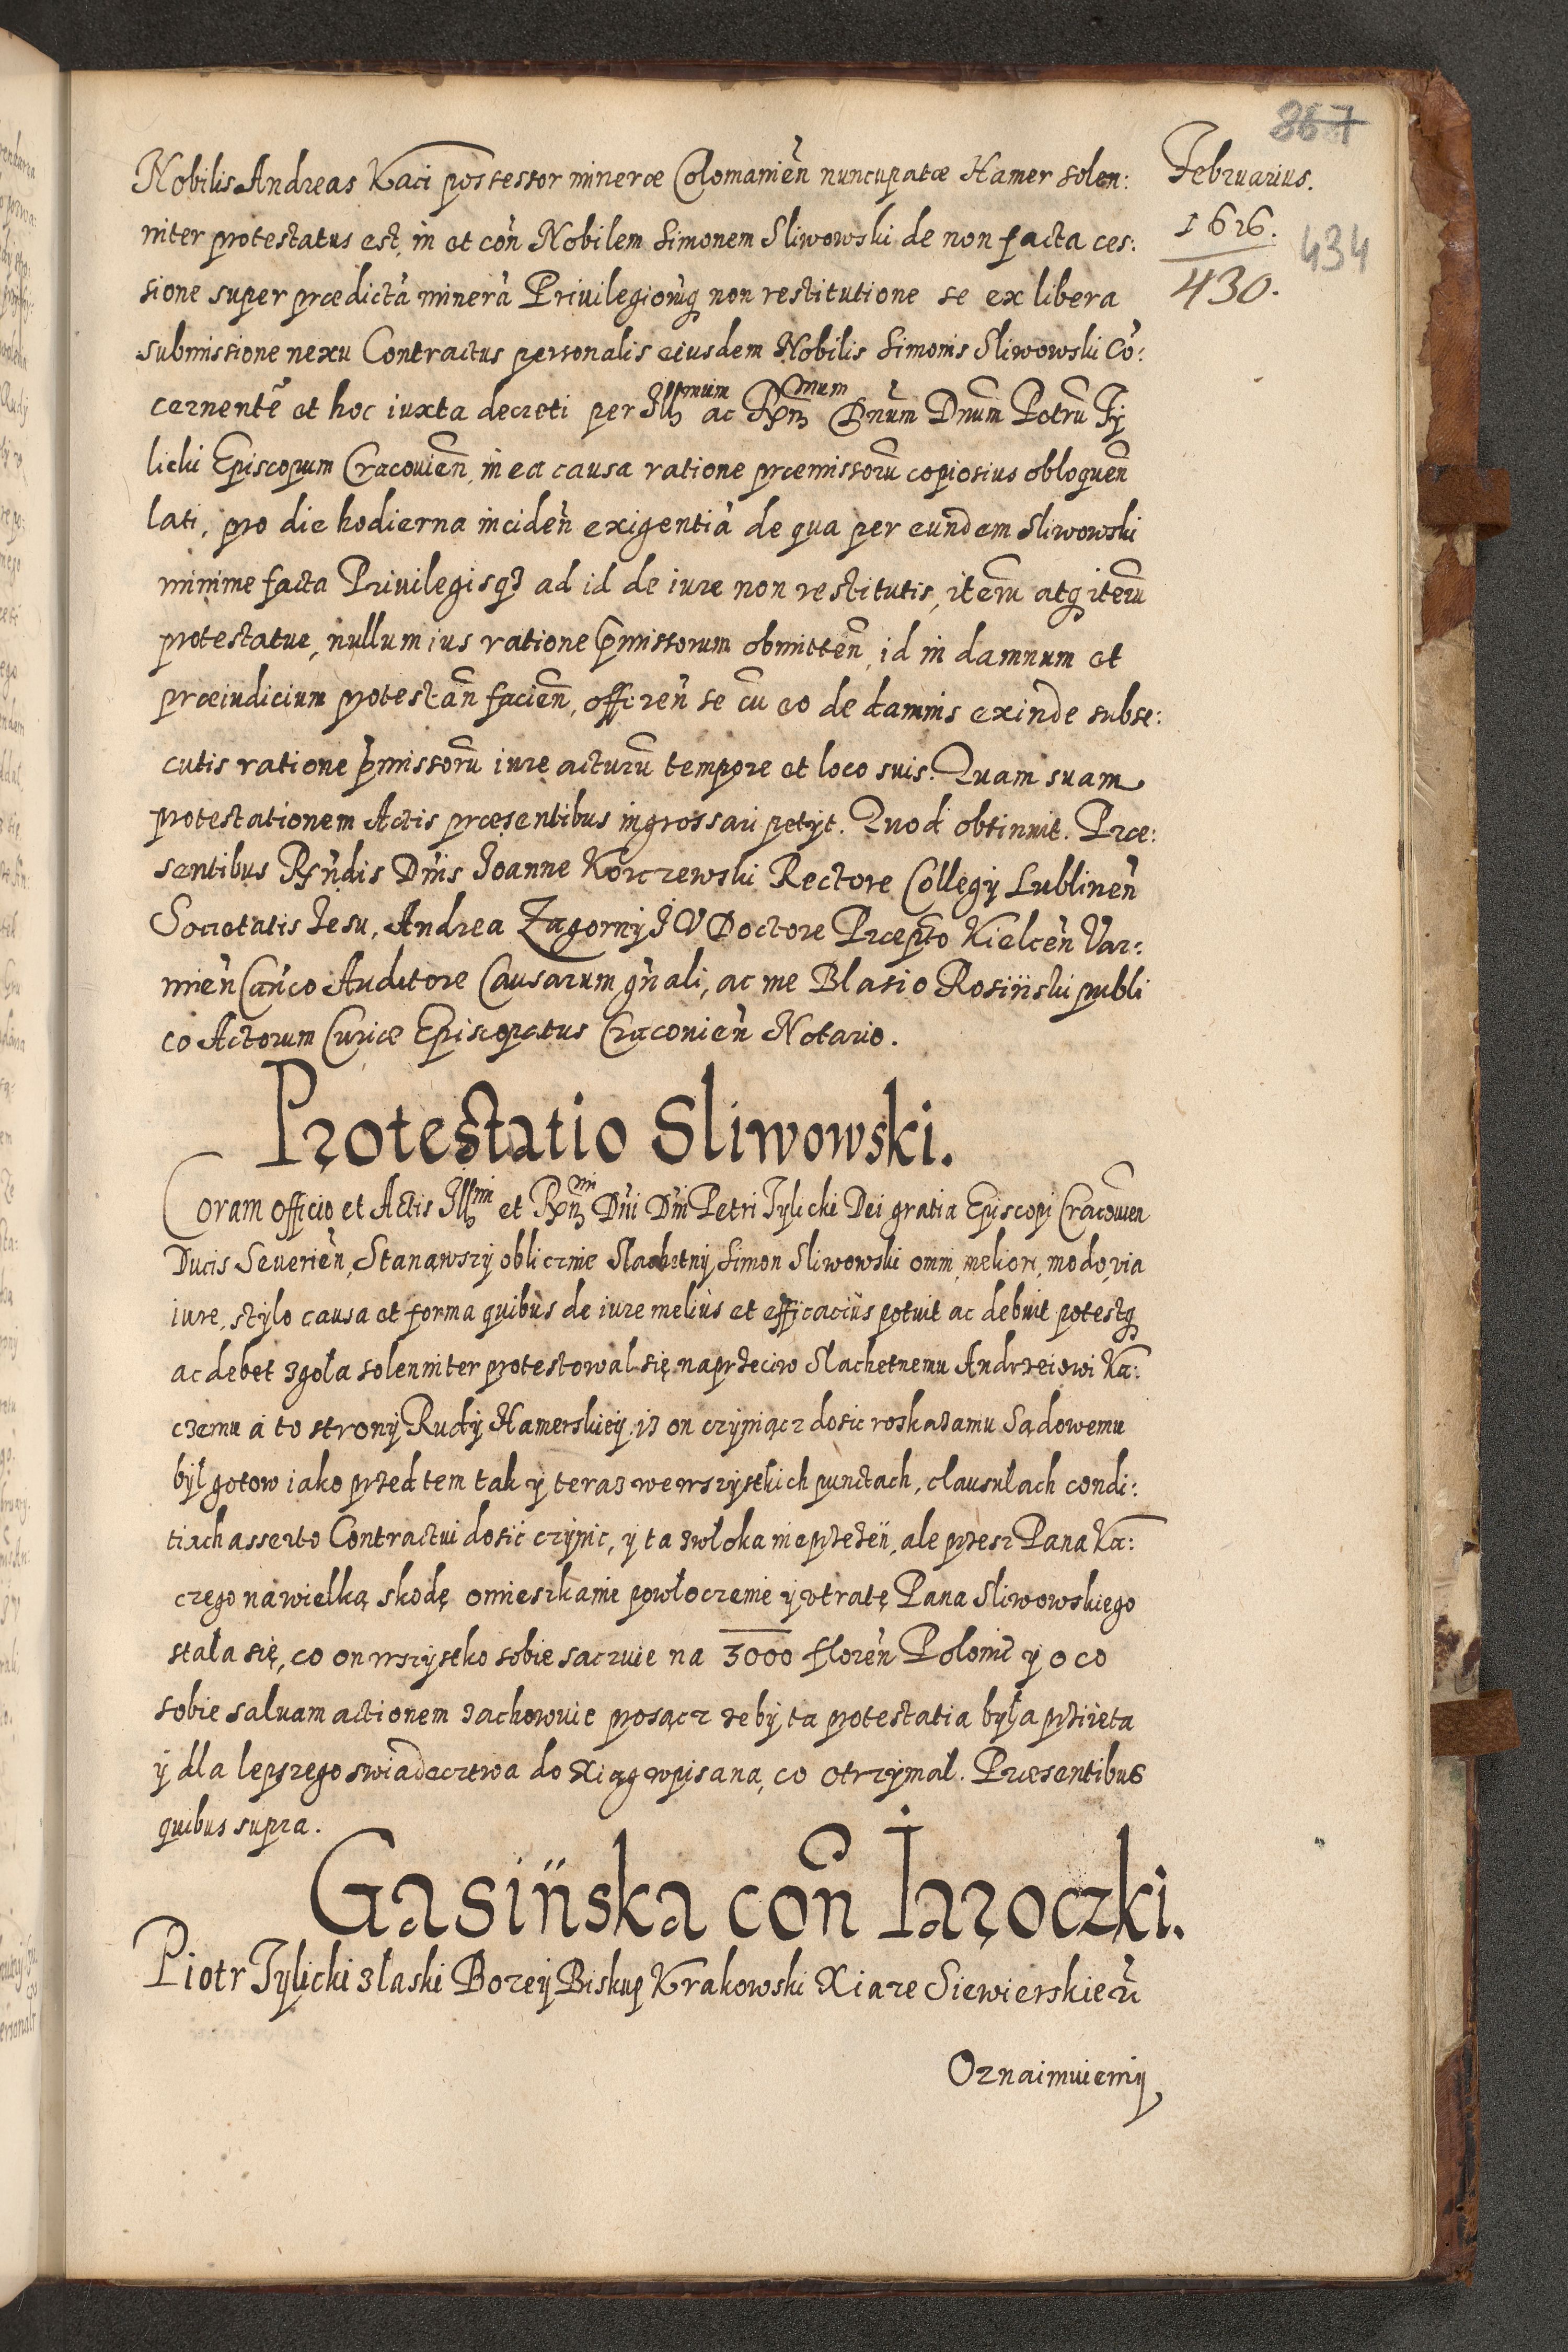 367
Februarius.
1616.
430.
434
Nobilis Andreas Kaci possessor mineræ Colomanien̄ nuncupatæ Hamer solen:
niter protestatus est, in et con̄ Nobilem Simonem Sliwowski de non facta ces:
sione super prædictā minerā Priuilegiorūq non restitutione se ex libera
submissione nexu Contractus personalis eiusdem Nobilis Simonis Sliwowski Cō:
cernentē et hoc iuxta decreti per Illmum ac Rndmum Dnūm Dnūm Petrū Ty
licki Episcopum Cracouien̄, in ea causa ratione præmissorū copiosius obloquen̄
lati, pro die hodierna inciden̄ exigentiā de qua per eundem Sliwowski
minime facta Priuilegisq3 ad id de iure non restitutis, iterū atq iterū
protestatur, nullum ius ratione p̄missorum obmitten̄, id in damnum et
præiudicium protestan̄ facien̄, offeren̄ se cū eo de damnis exinde subse:
cutis ratione p̄missorū iure acturū tempore et loco suis. Quam suam
protestationem Actis præsentibus ingrossari petyt. Quod obtinuit. Præ:
sentibus Rn̄dis Dn̄is Ioanne Korczewski Rectore Collegij Lublinen̄
Societatis Iesu, Andrea Zagorny I V Doctore Præpto Kielcen̄ Var:
mien̄ Can̄co Auditore Causarum gn̄ali, ac me Blasio Rosiński publi
co Actorum Curiæ Episcopatus Cracouien̄ Notario.
Protestatio Sliwowski.
Coram officio et Actis Illmi et Rndmi Dn̄i Dn̄i Petri Tylicki Dei gratia Episcopi Cracouien
Ducis Seuerien̄, Stanąwszy oblicznie Slachetny Simon Sliwowski omni, meliori, modo, via
iure, stylo causa et forma quibus de iure melius et efficacius potuit ac debuit potestq
ac debet zgoła solenniter protestowal się naprzeciw Slachetnemu Andrzeiowi Ka:
czemu a to strony Rudy Hamerskiey, iz on czyniącz dosic roskazaniu Sądowemu
był gotow iako przed tem tak y teraz we wszystkich punctach, clausulach condi:
tiach asserto Contractui dosić czynic, y ta zwłoka nie przezen̄, ale przesz Pana Ka:
czego na wielką skodę omieszkanie powłoczenie y vtratę Pana Sliwowskiego
stała się, co on wszystko sobie saczuie na 3000 floren̄ Polonic̄ y o co
sobie saluam actionem zachowuie prosącz zeby ta protestatia była przijęta
y dla lepszego swiadecztwa do Xiąg wpisana, co otrzymał. Præsentibus
quibus supra.
Gasińska con̄ Iaroczki.
Piotr Tylicki z łaski Bozey Biskup Krakowski Xiaze Siewierskie n̄
Oznaimuiemy